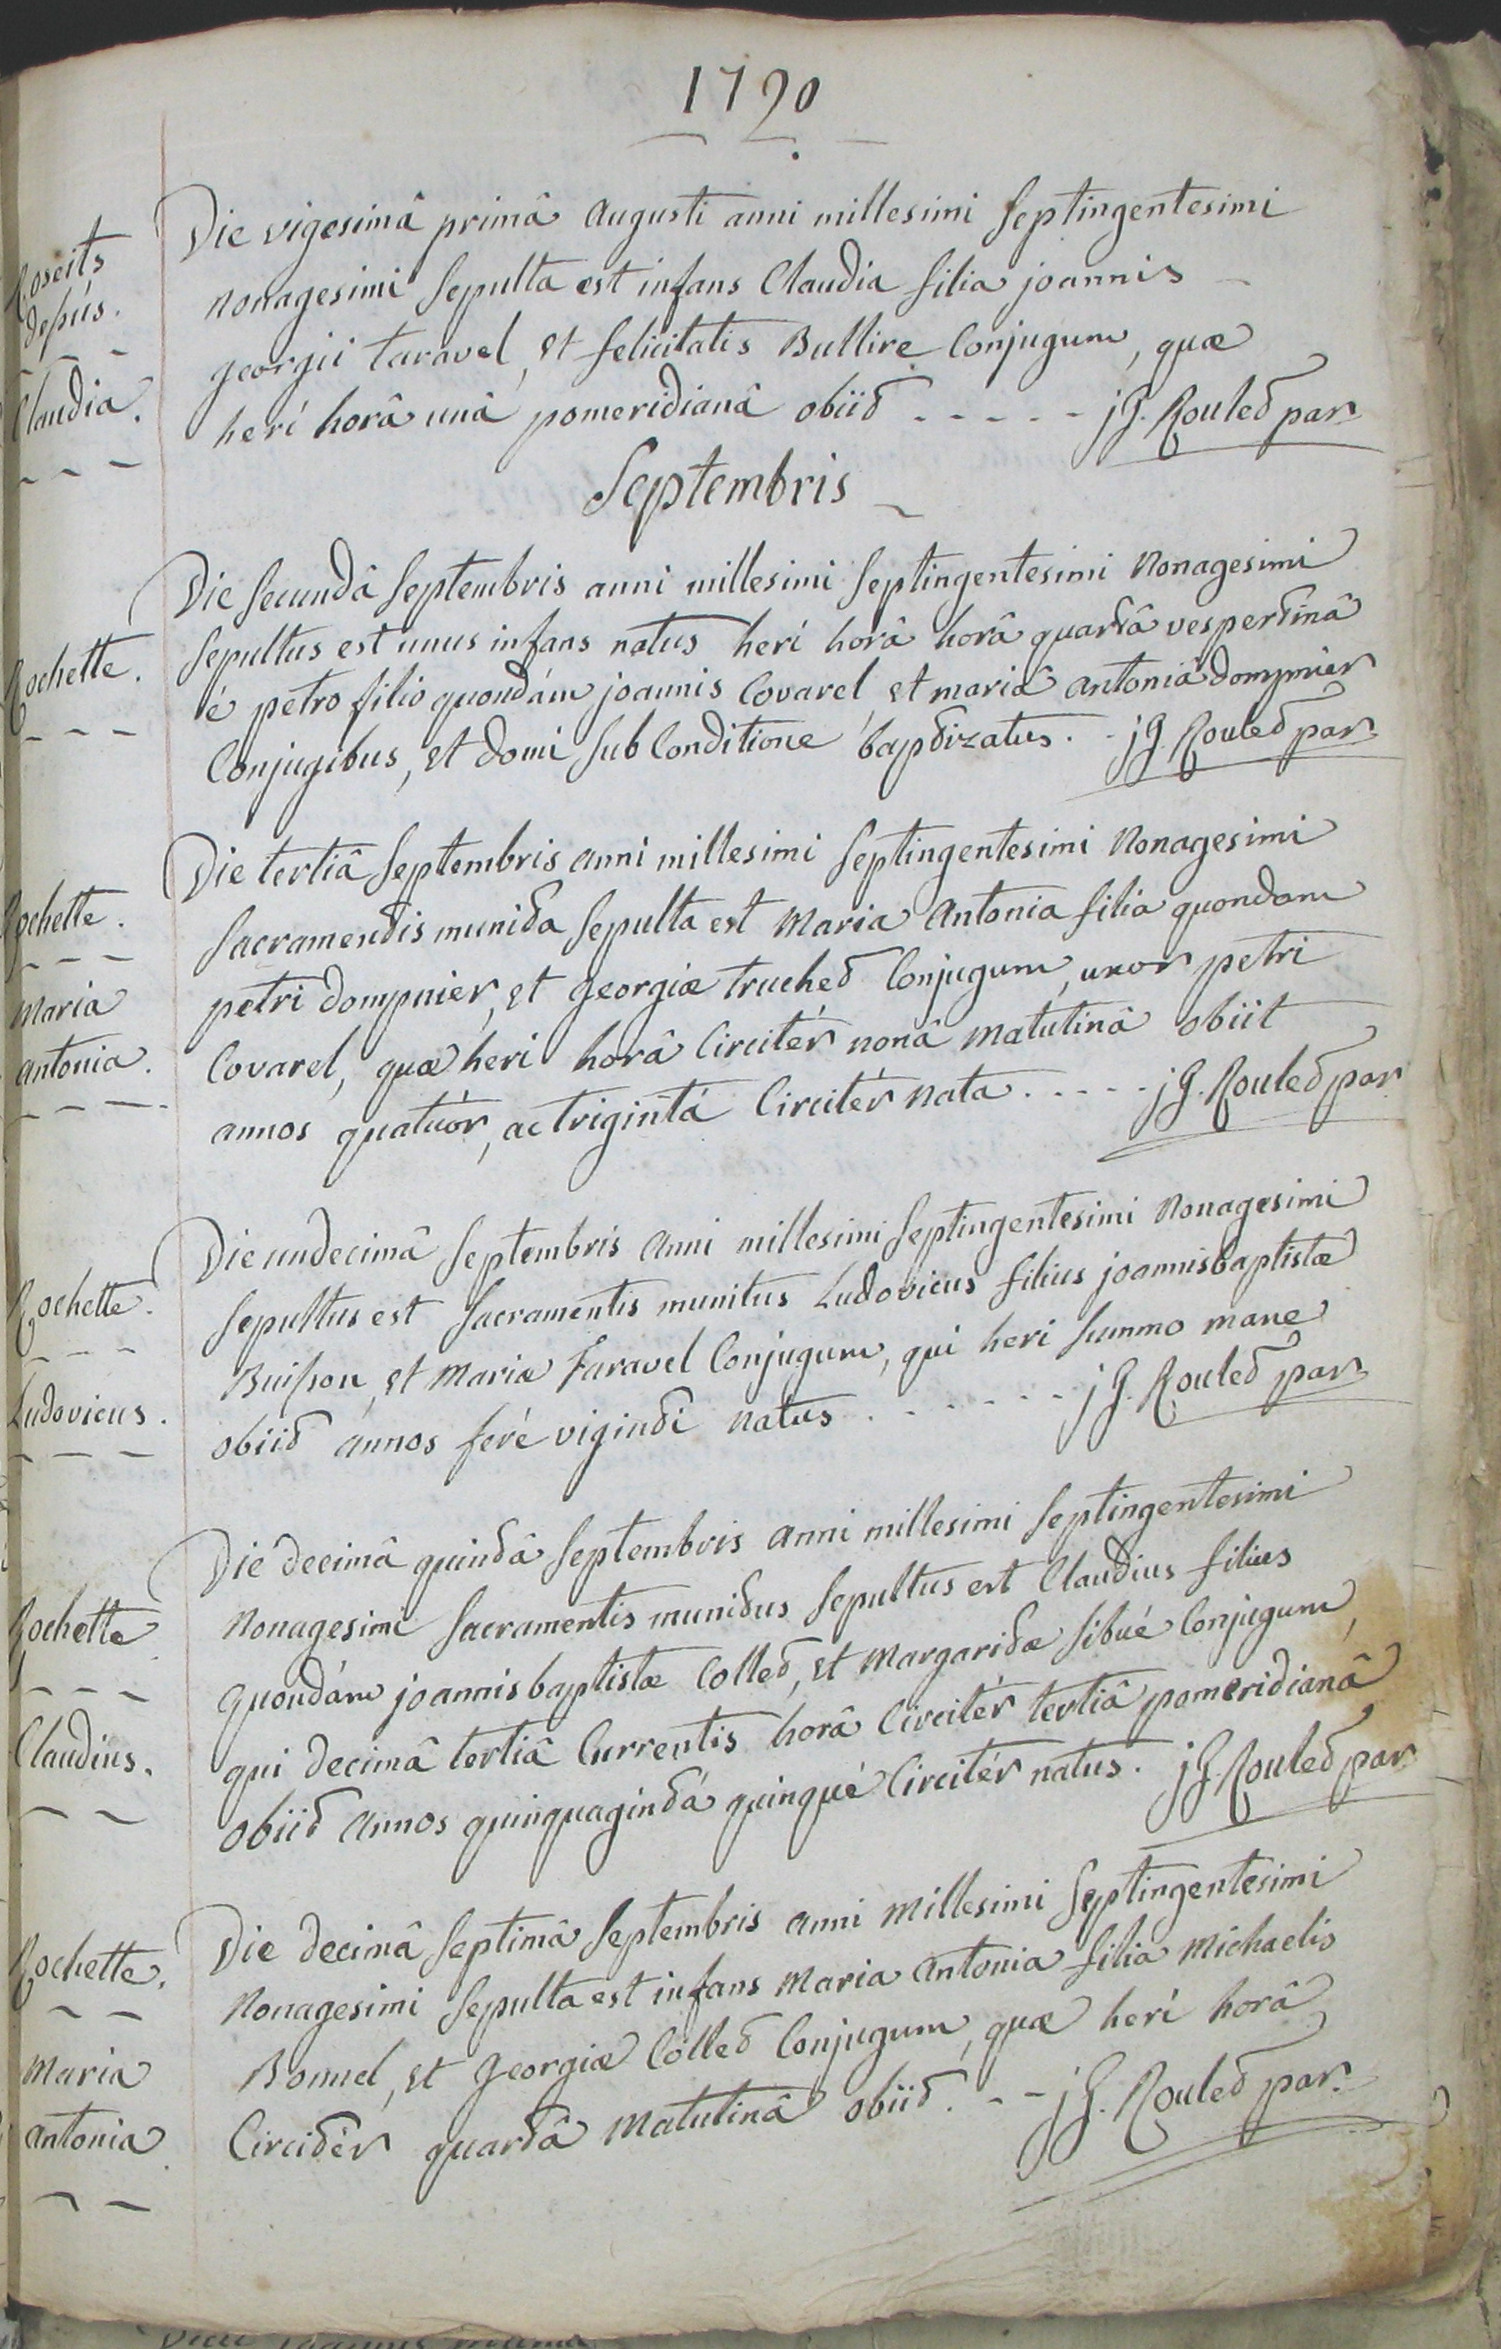 1790
Die vigesimâ primâ augusti anni millesimi septingentesimi
Claudia.
nonagesimi sepulta est infans Claudia filia joannis
georgii taravel, et felicitatis Bullire Conjugum, quæ
herí horâ unâ pomeridianâ obiit ----- jG. Roulet par.
Septembris
Rochette.
Die secundâ septembris anni millesimi septingentesimi nonagesimi
sepultus est unus infans natus herí horâ horâ quartâ vespertinâ
é petro filio quondám joannis Covarel, et mariâ antoniâ dompnier
Conjugibus, et domi sub Conditione baptizatus. - jG. Rouled par.
Rochette.
Maria
antonia.
Die tertiâ septembris anni millesimi septingentesimi nonagesimi
sacramentis munita sepulta est Maria antonia filia quondam
petri dompnier, et georgiæ truchet Conjugum, uxor petri
Covarel, quæ heri horâ Circitér nonâ matutinâ obiit
annos quatuór, ac trigintá Circitér nata. ---- jG. Roulet par.
Rochette.
Ludovicus.
Die undecimâ septembris anni millesimi septingentesimi nonagesimi
sepultus est sacramentis munitus Ludovicus filius joannisbaptistæ
Buisson, et Mariæ taravel Conjugum, qui heri summo mane
obiit ánnos feré viginti natus. ------ jG. Roulet par.
Rochette
Claudius.
Die decimâ quintâ septembris anni millesimi septingentesimi
nonagesimi sacramentis munitus sepultus est Claudius filius
quondám joannisbaptistæ Collet, et Margaritæ sibué Conjugum,
qui decimâ tertiâ Currentis horâ Circitér tertiâ pomeridianâ
obiit annos quinquagintá quinqué Circitér natus. jG. Roulet par.
Rochette.
Maria
antonia
Die decimâ septimâ septembris anni millesimi septingentesimi
nonagesimi sepulta est infans Maria antonia filia Michaelis
Bonnel, et georgiæ Collet Conjugum, quæ herí horâ
Circitér quartâ matutinâ obiit. -- jG. Roulet par.